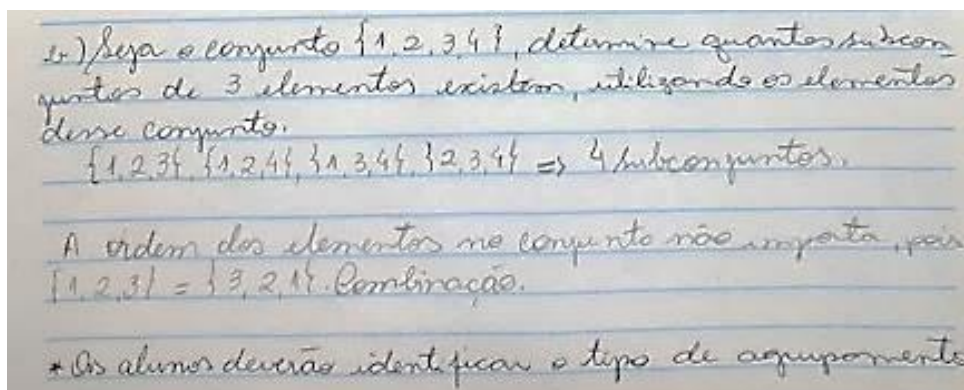 b) Seja o conjunto {1, 2, 3, 4}, determine quantos subcon
juntos de 3 elementos existem, utilizando os elementos
desse conjunto.
{1, 2, 3}, {1, 2, 4}, {1, 3, 4}, {2, 3, 4} => 4 subconjuntos.
A ordem dos elementos no conjunto não importa, pois
{1, 2, 3} = {3, 2, 1}. Combinação.
* Os alunos deverão identificar o tipo de agrupamento